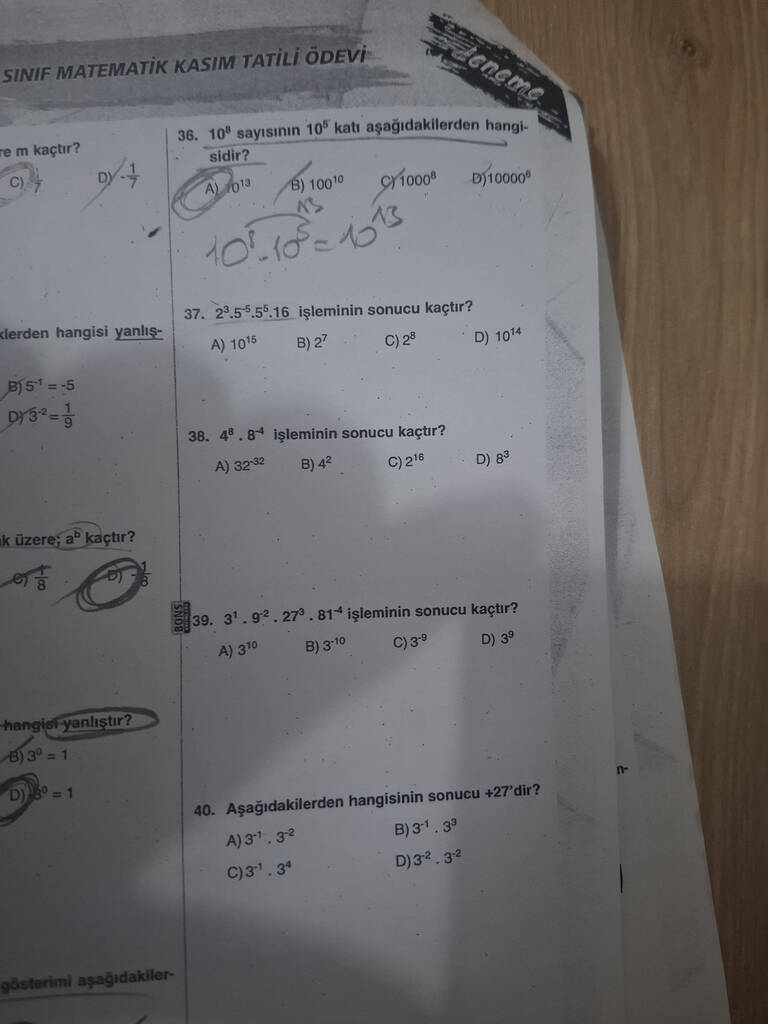 SINIF MATEMATİK KASIM TATİLİ ÖDEVİ
deneme
re m kaçtır?
C) 1/7 D) -1/7
klerden hangisi yanlış-
B) 5⁻¹ = -5
D) 3⁻² = 1/9
ak üzere; aᵇ kaçtır?
C) 1/8 D) -1/8
hangisi yanlıştır?
B) 3⁰ = 1
D) ⁰ = 1
gösterimi aşağıdakiler-
36. 10⁸ sayısının 10⁵ katı aşağıdakilerden hangi-
sidir?
A) 10¹³ B) 100¹⁰ C) 1000⁸ D) 10000⁶
13
10⁸ . 10⁵ = 10¹³
37. 2³.5⁻⁵.5⁵.16 işleminin sonucu kaçtır?
A) 10¹⁵ B) 2⁷ C) 2⁸ D) 10¹⁴
38. 4⁸ . 8⁻⁴ işleminin sonucu kaçtır?
A) 32⁻³² B) 4² C) 2¹⁶ D) 8³
BONS
39. 3¹ . 9⁻² . 27³ . 81⁻⁴ işleminin sonucu kaçtır?
A) 3¹⁰ B) 3⁻¹⁰ C) 3⁻⁹ D) 3⁹
40. Aşağıdakilerden hangisinin sonucu +27'dir?
A) 3⁻¹ . 3⁻² B) 3⁻¹ . 3³
C) 3⁻¹ . 3⁴ D) 3⁻² . 3⁻²
n-